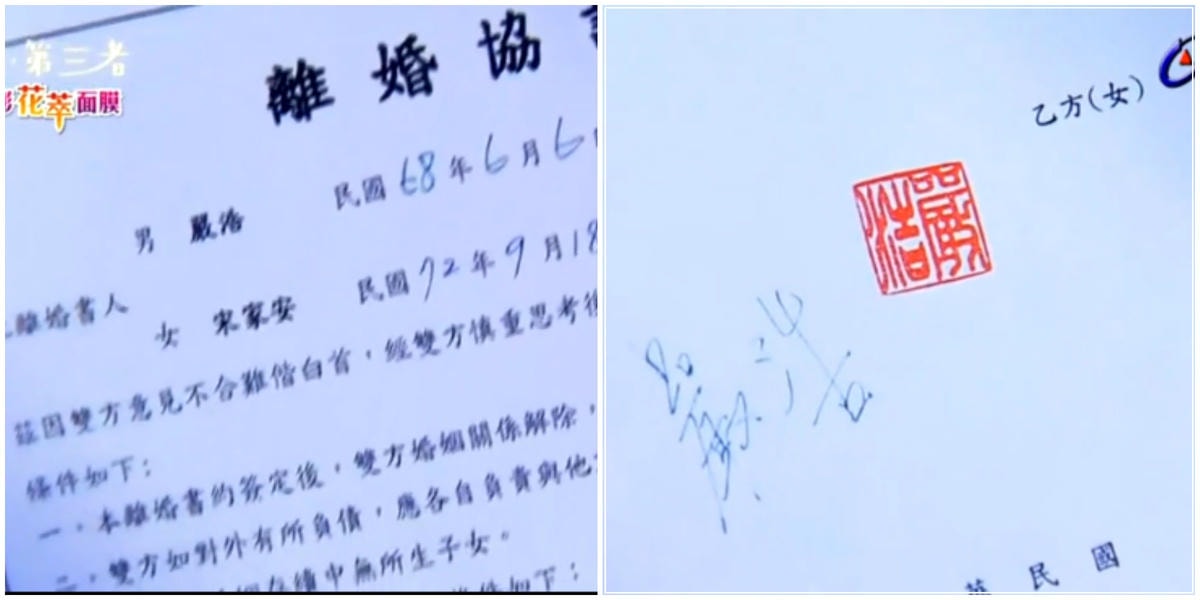 第三者
花萃面膜
離婚協
民國68年6月6
男 嚴浩
民國72年9月18
離婚書人
女 宋家安
茲因雙方意見不合難偕白首，經雙方慎重思考後
條件如下：
一．本離婚書約簽定後，雙方婚姻關係解除，
二．雙方如對外有所負債，應各自負責與他
存續中無所生子女。
條件如下：
乙方(女)
嚴浩
嚴浩
民國